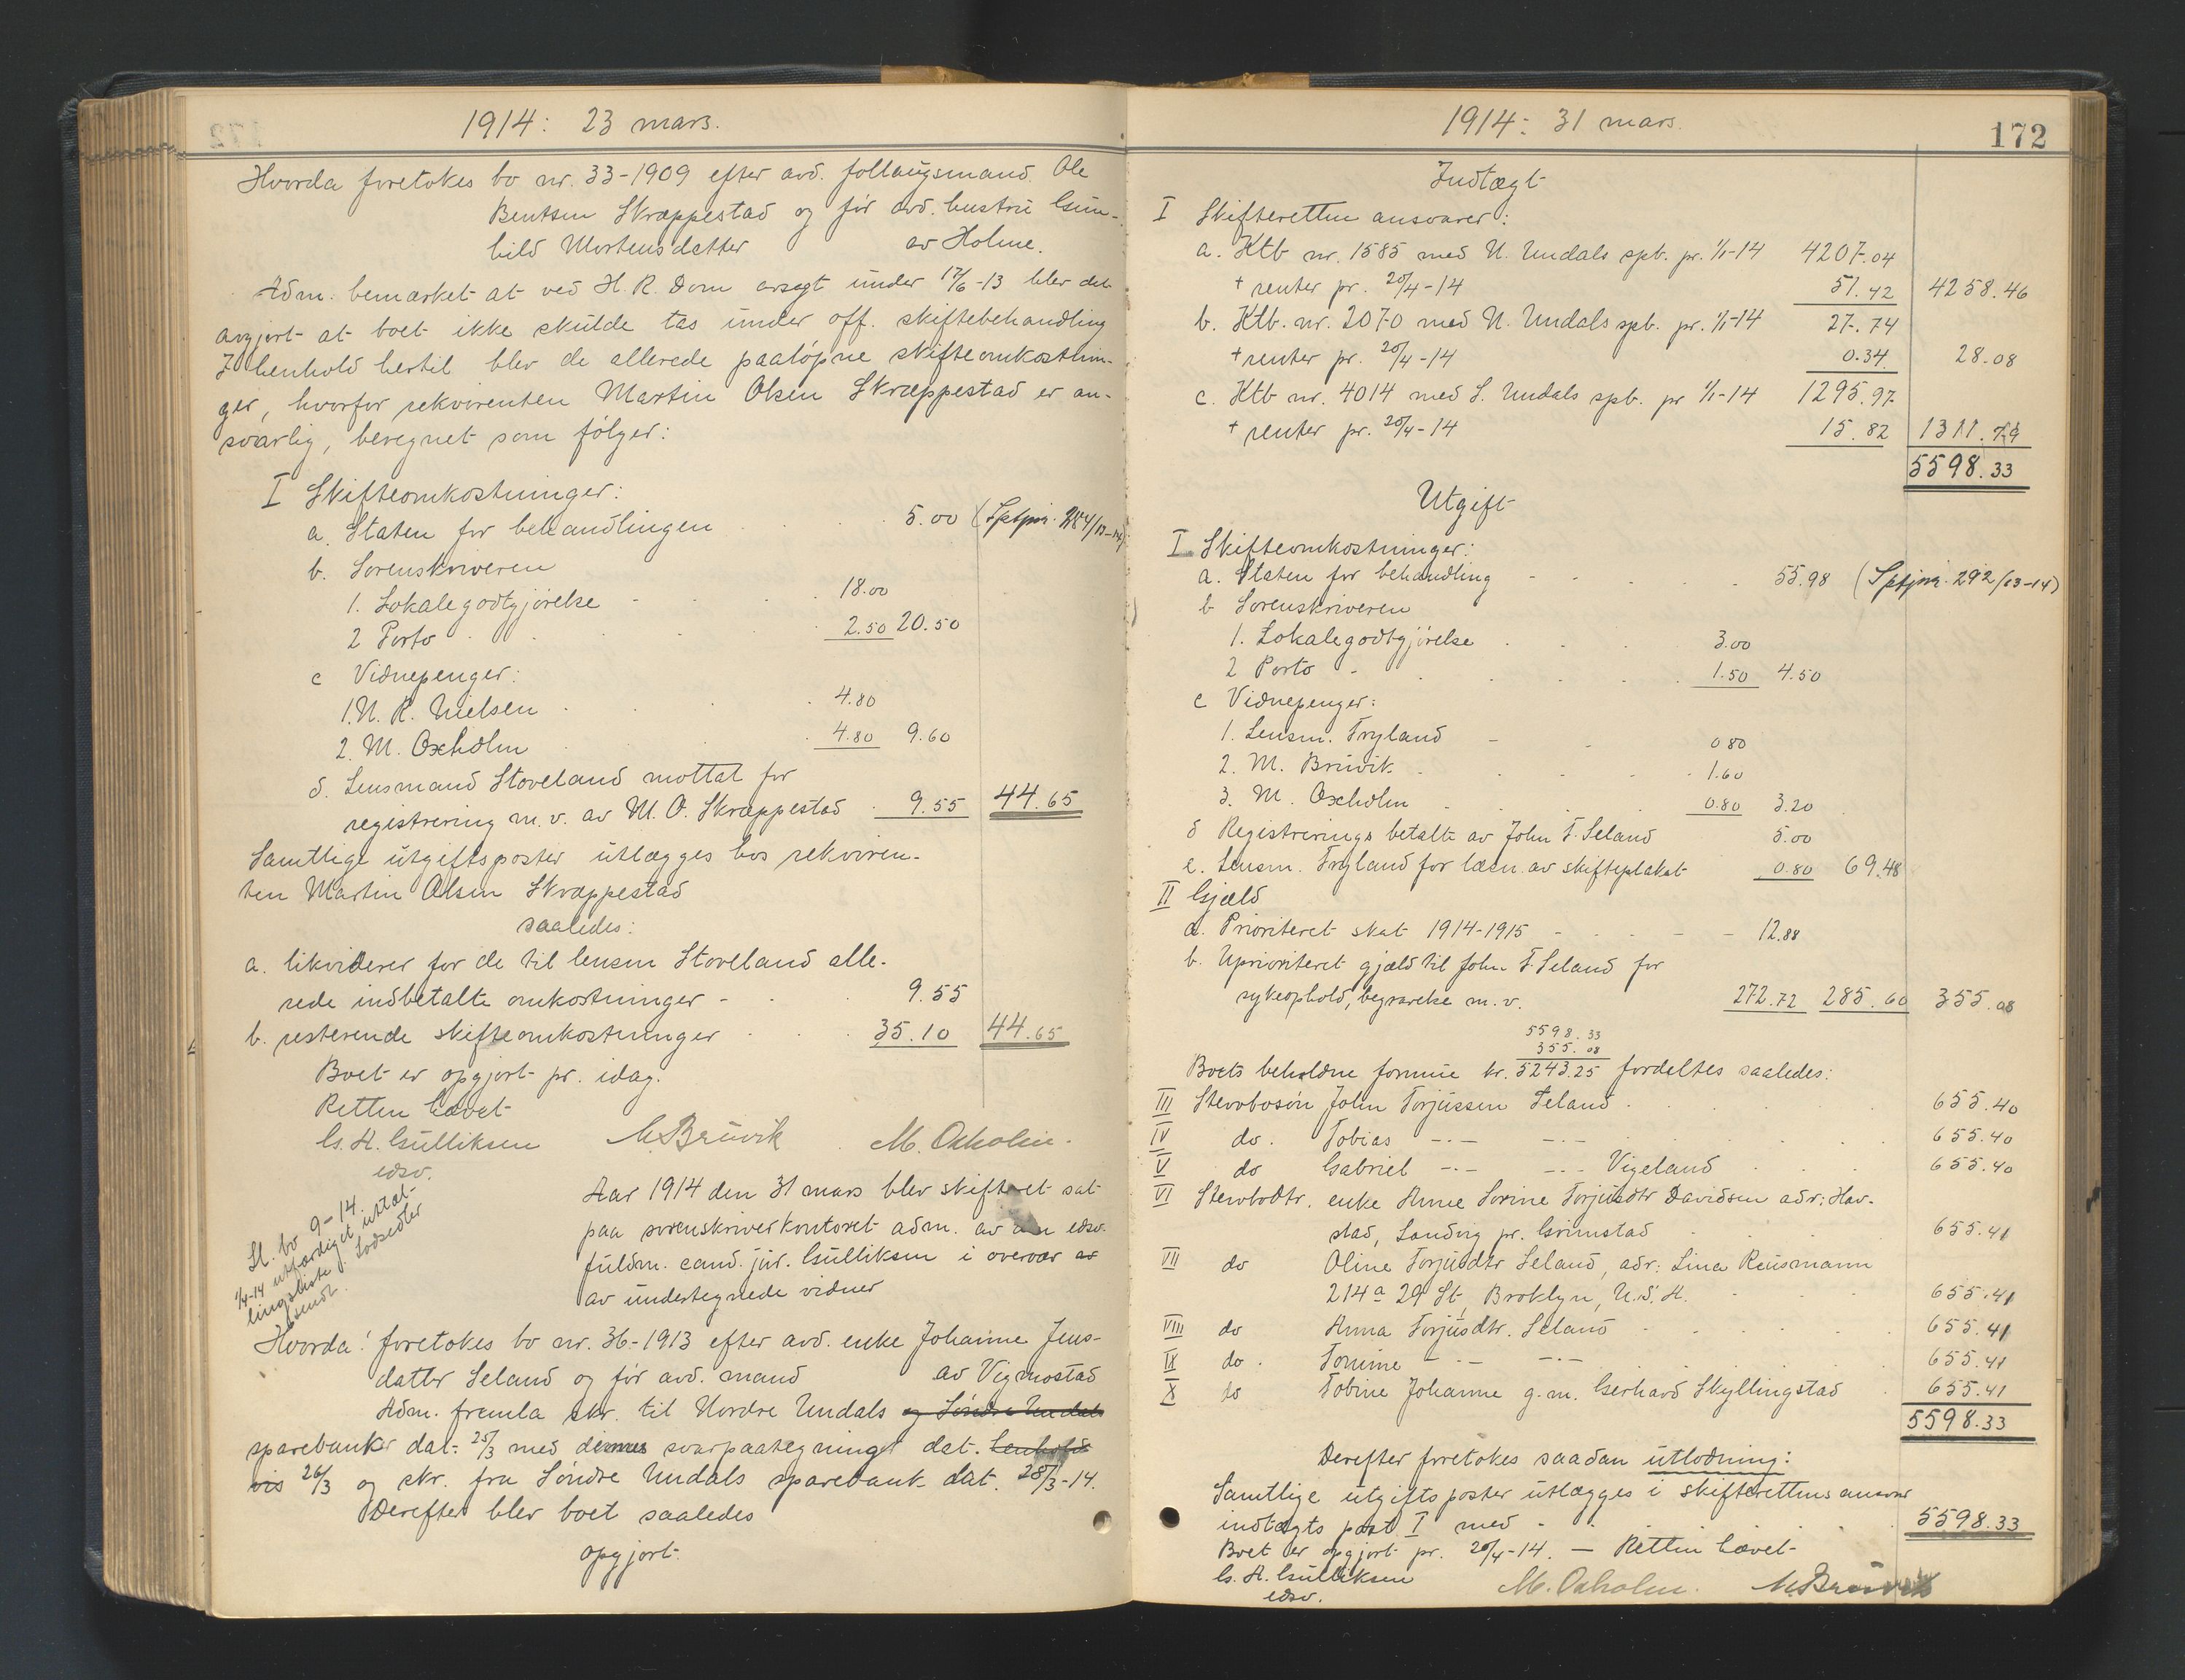 1914: 23 mars.
Hvorda foretokes bo nr. 33-1909 efter avd. follaugsmand Ole
Bentsen Skræppestad og før avd. hustru Gun-
hild Mortensdatter av Holme.
Adm. bemærket at ved H. R. Dom avsagt under 17/6-13 blev det
avgjort at boet ikke skulde tas under off. skiftebehandling
I henhold hertil blev de allerede paaløpne skifteomkostnin-
ger, hvorfor rekvirenten Martin Olsen Skræppestad er an-
svarlig, beregnet som følger:
I Skifteomkostninger:
a. Staten for behandlingen 5.00
b. Sorenskriveren
1. Lokalegodtgjørelse - 18.00
2 Porto 2.50 20.50
c Vidnepenger:
1. N. R. Nielsen 4.80
2. M. Oxholm 4.80 9.60
d. Lensmand Stoveland mottat for
registrering m.v. av M. O. Skræppestad 9.55 44.65
Samtlige utgiftsposter utlægges hos rekviren-
ten Martin Olsen Skræppestad
saaledes:
a. likviderer for de til lensm Stoveland alle-
rede indbetalte omkostninger - 9.55
b. resterende skifteomkostninger 35.10 44.65
Boet er opgjort pr. idag.
Retten hævet
G. A. Gulliksen M. Bruvik M. Oxholm.
edsv.
Aar 1914 den 31 mars blev skifteret sat
paa sorenskriverkontoret adm. av edsv.
fuldm. cand. jur. Gulliksen i overvær av
av undertegnede vidner
Sl. bo 9-14.
1/4-14 utfærdiget uttæl-
lingsliste. Lodsedler
sendt.
Hvorda! foretokes bo nr. 36-1913 efter avd. enke Johanne Jens-
datter Seland og før avd. mand av Vigmostad
Adm. fremla skr. til Nordre Undals og Søndre Undals
sparebanker dat. 25/3 med dennes svarpaategninger dat. henholds
vis 26/3 og skr. fra Søndre Undals sparebank dat. 28/3-14.
Derefter blev boet saaledes
opgjort.
1914: 31 mars.
172
Indtægt
I Skifteretten ansvarer:
a. Ktb nr. 1585 med N. Undals spb. pr. 1/1-14 4207.04
+ renter pr. 20/4-14 51.42 4258.46
b. Ktb. nr. 2070 med N. Undals spb. pr. 1/1-14 27.74
+ renter pr. 20/4-14 0.34 28.08
c. Ktb nr. 4014 med S. Undals spb. pr 1/1-14 1295.97
+ renter pr. 20/4-14 15.82 1311.79
5598.33
Utgift
I Skifteomkostninger:
a. Staten for behandling - 55.98 (Sptjnr. 292/13-14)
b Sorenskriveren
1. Lokalegodtgjørelse 3.00
2 Porto - 1.50 4.50
c Vidnepenger:
1. Lensm. Tryland - 0.80
2. M. Bruvik 1.60
3. M. Oxholm 0.80 3.20
d Registrerings betalt av John T. Seland 5.00
e. Lensm. Tryland for læsn. av skifteplakat 0.80 69.48
II Gjæld
a. Prioriteret skat 1914-1915 - 12.88
b. Uprioriteret gjæld til John T. Seland for
sykeophold, begravelse m. v. 272.72 285.60 355.08
5598.33
355.08
Boets beholdne formue kr. 5243.25 fordeltes saaledes:
III Stervbosøn John Torjussen Seland 655.40
IV do. Tobias -·- -·- 655.40
V do Gabriel -·- -·- Vigeland 655.40
VI Stervbodtr. enke Anne Sorine Torjusdtr Davidsen adr: Hav-
stad, Landvig pr. Grimstad 655.41
VII do Oline Torjusdtr Seland, adr: Lina Reusmann
214a 29 St, Broklyn, U.S.A. 655.41
VIII do Anna Torjusdtr. Seland 655.41
IX do. Tomine -·- -·- 655.41
X do Tobine Johanne g. m. Gerhard Skyllingstad 655.41
5598.33
Derefter foretokes saadan utlodning:
Samtlige utgiftsposter utlægges i skifterettens ansvar
indtægts post I med 5598.33
Boet er opgjort pr. 20/4-14. — Retten hævet-
G. A. Gulliksen M. Oxholm. M. Bruvik
edsv.